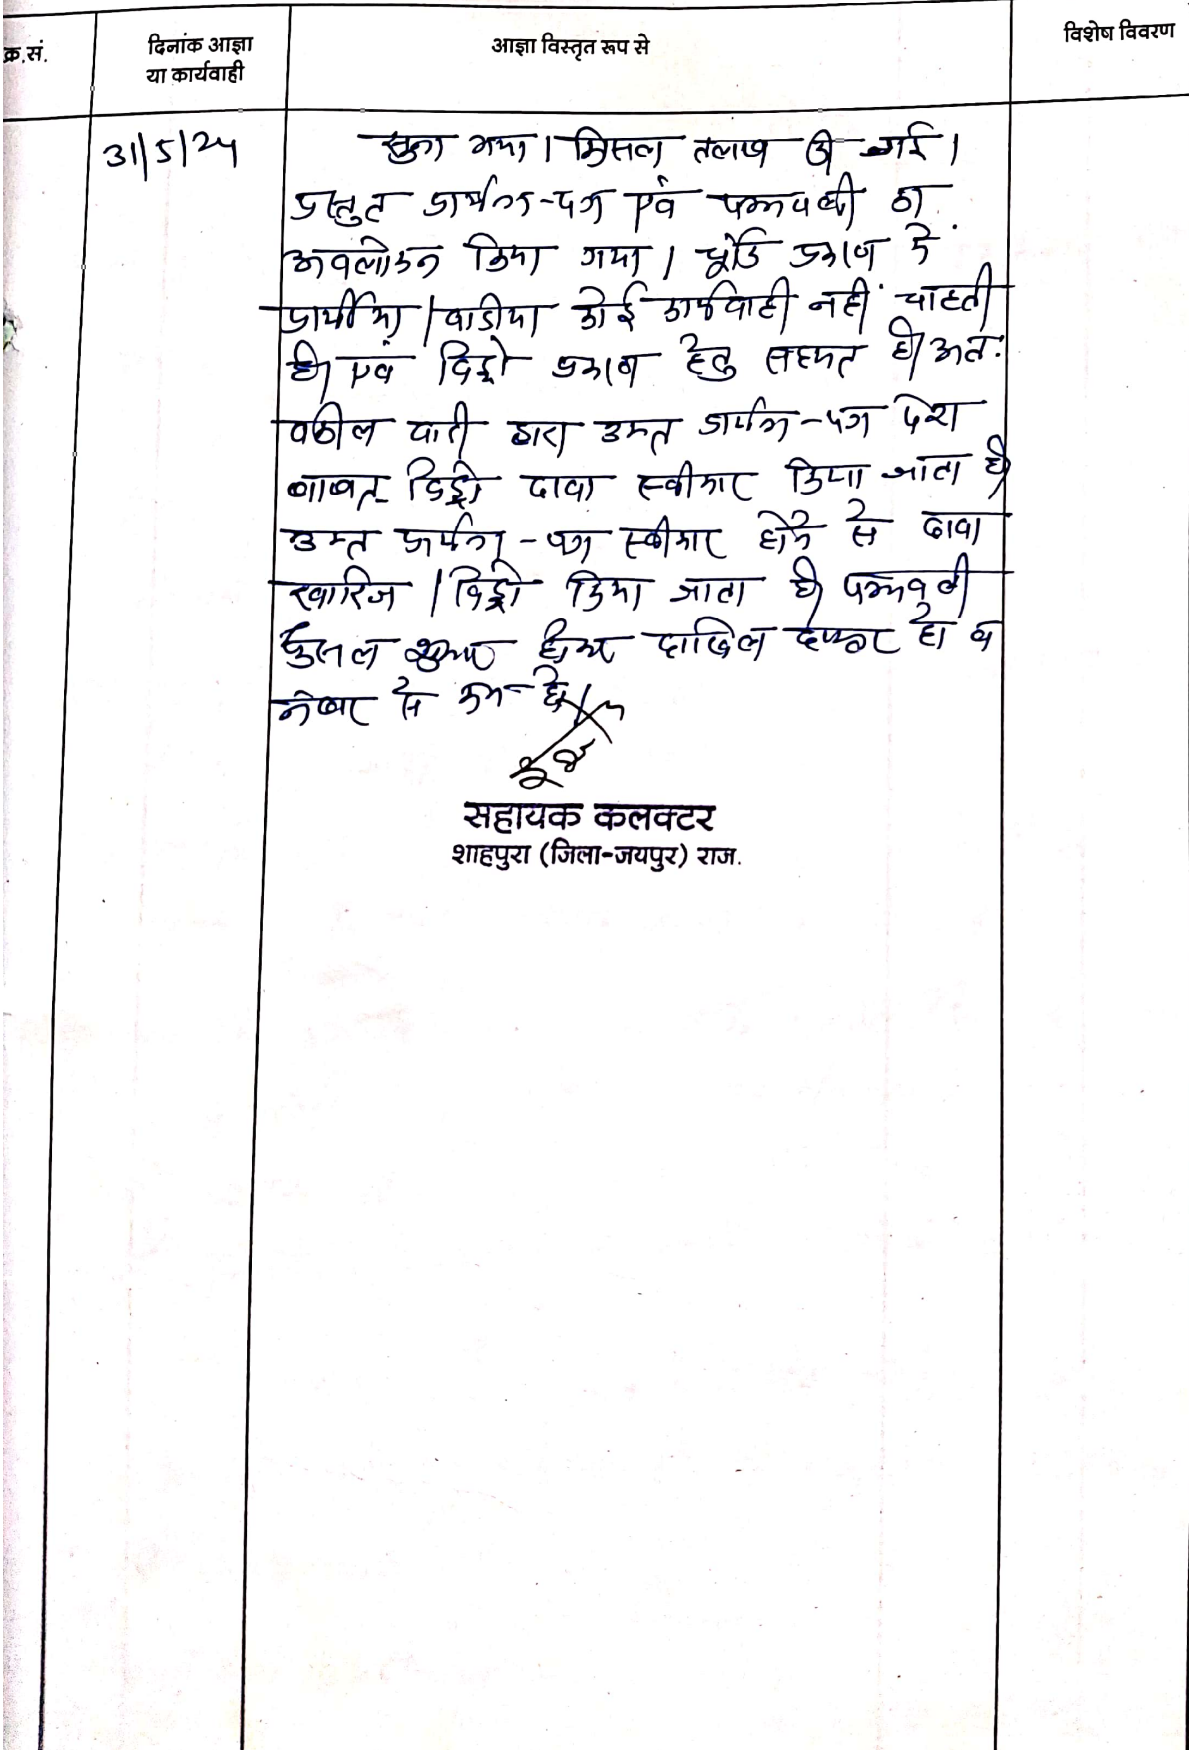 क्र.सं.
दिनांक आज्ञा
या कार्यवाही
आज्ञा विस्तृत रूप से
विशेष विवरण
31/5/24
सुना गया। मिसल तलाष की गई।
प्रस्तुत प्रार्थना-पत्र एवं पत्रावली का
अवलोकन किया गया। चूंकि प्रकरण में
प्रार्थीया/वादीया कोई कार्यवाही नहीं चाहती
है। एवं विड्रो हेतु सहमत है। अतः
वकील वादी द्वारा उक्त प्रार्थना-पत्र पेश
बाबत् विड्रो दावा स्वीकार किया जाता है।
उक्त प्रार्थना-पत्र स्वीकार होने से दावा
खारिज/विड्रो किया जाता है। पत्रावली
फैसल शुमार होकर दाखिल दफ्तर हो व
नम्बर से कम हो।
सहायक कलक्टर
शाहपुरा (जिला-जयपुर) राज.